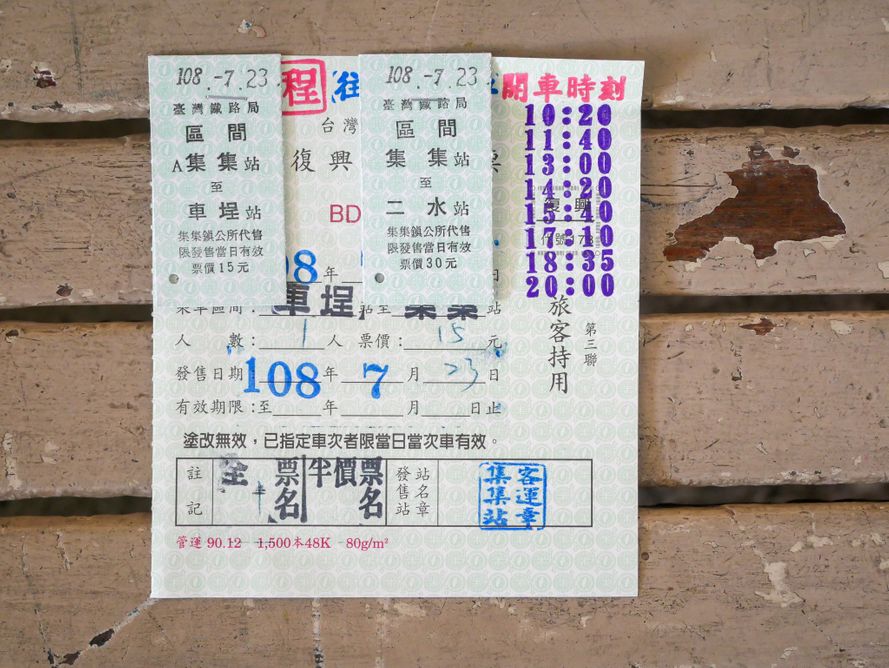 108.-7.23
臺灣鐵路局
區間
A集集站
至
車埕站
集集鎮公所代售
限發售當日有效
票價15元
108.-7.23
臺灣鐵路局
區間
集集站
至
二水站
集集鎮公所代售
限發售當日有效
票價30元
程 往
台灣
復興 票
BD
08年 日
乘車區間:車埕站至集集站
人數:1人 票價:15元
發售日期:108年7月23日
有效期限:至 年 月 日止
塗改無效,已指定車次者限當日當次車有效。
註記
全票 1名
半價票 名
發售站
站名章
集集站
客運章
管運 90.12 1,500本48K 80g/m²
開車時刻
10:20
11:40
13:00
14:20
15:40
17:10
18:35
20:00
復興
旅客持用
第三聯